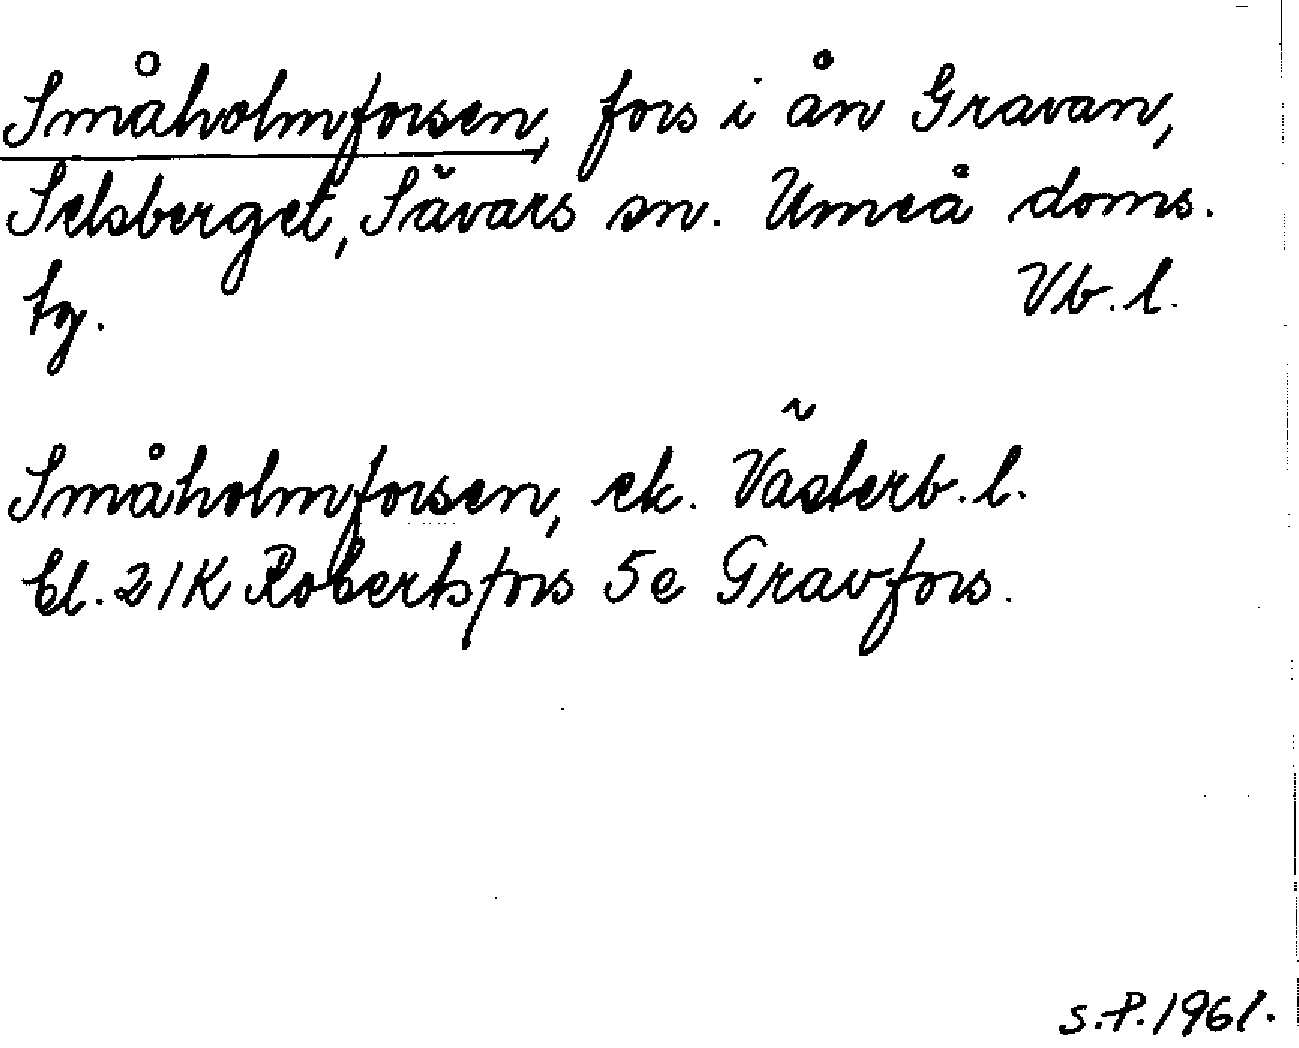 Småholmforsen, fors i ån Gravan,
Selsberget, Sävars sn. Umeå doms.
tg. Vb. l.
Småholmforsen, ek. Västerb. l.
bl. 21K Robertsfors 5e Gravfors.
S.P. 1961.